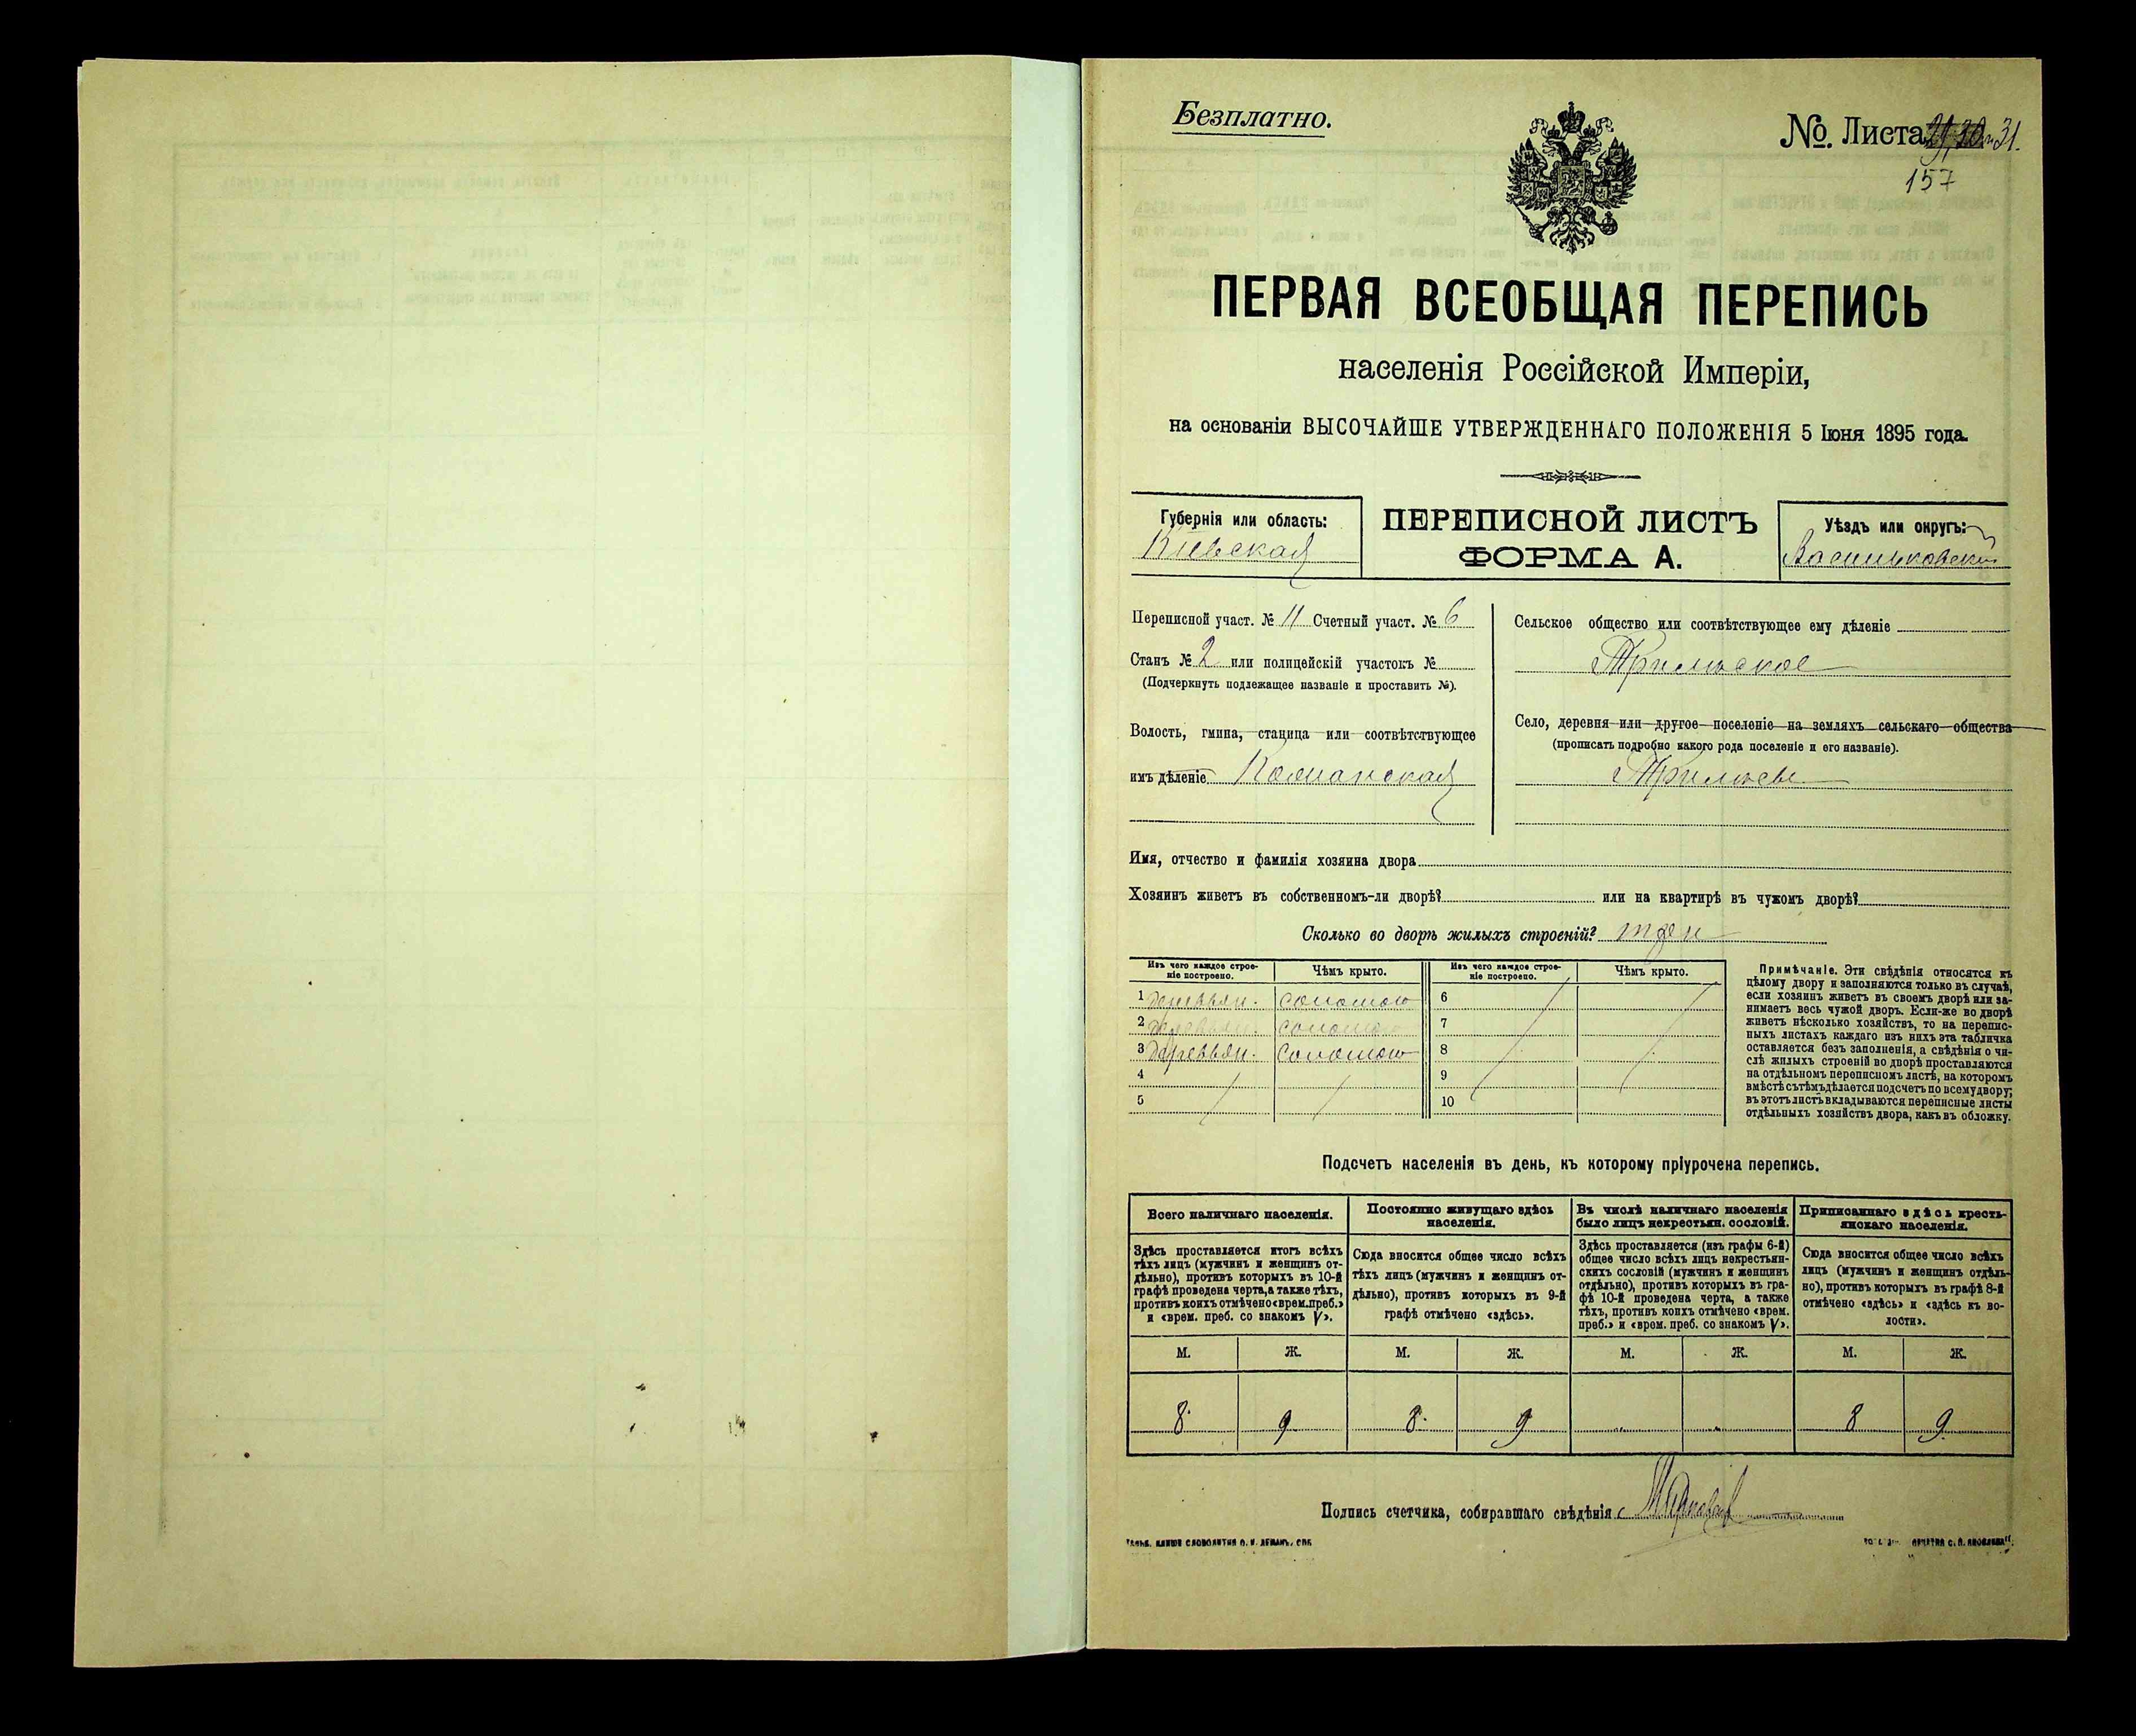 Безплатно.
№. Листа 29, 30 и 31.
157
ПЕРВАЯ ВСЕОБЩАЯ ПЕРЕПИСЬ
населенія Россійской Имперіи,
на основаніи ВЫСОЧАЙШЕ УТВЕРЖДЕННАГО ПОЛОЖЕНІЯ 5 Іюня 1895 года.
Губернія или область:
Кіевская
ПЕРЕПИСНОЙ ЛИСТЪ
ФОРМА А.
Уѣздъ или округъ:
Васильковскій
Переписной участ. № 11 Счетный участ. № 6
Станъ № 2 или полицейскій участокъ №
(Подчеркнуть подлежащее названіе и проставить №).
Волость, гмина, станица или соотвѣтствующее
имъ дѣленіе
Сельское общество или соотвѣтствующее ему дѣленіе
Трилѣское
Село, деревня или другое поселеніе на земляхъ сельскаго общества
(прописать подробно какого рода поселеніе и его названіе).
Трилѣсы
Имя, отчество и фамилія хозяина двора
Хозяинъ живетъ въ собственномъ-ли дворѣ? или на квартирѣ въ чужомъ дворѣ?
Сколько во дворѣ жилыхъ строеній? три
Изъ чего каждое строе-
ніе построено.
Чѣмъ крыто.
Изъ чего каждое строе-
ніе построено.
Чѣмъ крыто.
1 деревян. соломою 6
2 деревян. соломою 7
3 деревян. соломою 8
4 9
5 10
Примѣчаніе. Эти свѣдѣнія относятся къ
цѣлому двору и заполняются только въ случаѣ,
если хозяинъ живетъ въ своемъ дворѣ или за-
нимаетъ весь чужой дворъ. Если-же во дворѣ
живетъ нѣсколько хозяйствъ, то на перепис-
ныхъ листахъ каждаго изъ нихъ эта табличка
оставляется безъ заполненія, а свѣдѣнія о чи-
слѣ жилыхъ строеній во дворѣ проставляются
на отдѣльномъ переписномъ листѣ, на которомъ
вмѣстѣ съ тѣмъ дѣлается подсчетъ по всему двору;
въ этотъ листъ вкладываются переписные листы
отдѣльныхъ хозяйствъ двора, какъ въ обложку.
Подсчетъ населенія въ день, къ которому пріурочена перепись.
Всего наличнаго населенія.
Постоянно живущаго здѣсь
населенія.
Въ числѣ наличнаго населенія
было лицъ некрестьян. сословій.
Приписаннаго здѣсь кресть-
янскаго населенія.
Здѣсь проставляется итогъ всѣхъ
тѣхъ лицъ (мужчинъ и женщинъ от-
дѣльно), противъ которыхъ въ 10-й
графѣ проведена черта, а также тѣхъ,
противъ коихъ отмѣчено «врем. преб.»
и «врем. преб. со знакомъ V».
Сюда вносится общее число всѣхъ
тѣхъ лицъ (мужчинъ и женщинъ от-
дѣльно), противъ которыхъ въ 9-й
графѣ отмѣчено «здѣсь».
Здѣсь проставляется (изъ графы 6-й)
общее число всѣхъ лицъ некрестьян-
скихъ сословій (мужчинъ и женщинъ
отдѣльно), противъ которыхъ въ гра-
фѣ 10-й проведена черта, а также
тѣхъ, противъ коихъ отмѣчено «врем.
преб.» и «врем. преб. со знакомъ V».
Сюда вносится общее число всѣхъ
лицъ (мужчинъ и женщинъ отдѣль-
но), противъ которыхъ въ графѣ 8-й
отмѣчено «здѣсь» и «здѣсь къ во-
лости».
М. Ж. М. Ж. М. Ж. М. Ж.
8 9 8 9 „ „ 8 9
Подпись счетчика, собиравшаго свѣдѣнія